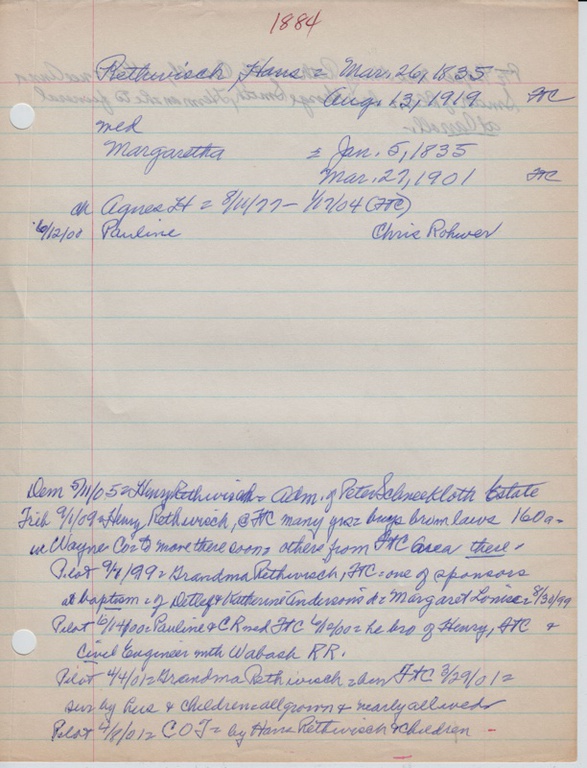 1884
Rethwisch, Hans = Mar. 26, 1835 -
Aug. 13, 1919 FtC
med
Margaretha = Jan. 5, 1835
Mar. 27, 1901 FtC
ch Agnes H = 8/11/77 - 1/17/04 (FtC)
6/12/00 Pauline Chris Rohwer
Dem 5/11/05 = Henry Rethwisch = Adm. of Peter Schneekloth Estate
Trib 9/1/09 = Henry Rethwisch, @ FtC many yrs = buys 160a -
in Wayne Co = to move there soon = others from FtC area there -
Pilot 9/7/99 = Grandma Rethwisch, FtC = one of sponsors
at baptism = of Detlef & Katherine Anderson's d = Margaret Louise = 8/30/99
Pilot 6/14/00 = Pauline & CR med FtC 6/12/00 = he bro of Henry, FtC &
Civil Engineer with Wabash RR.
Pilot 4/4/01 = Grandma Rethwisch = FtC 3/29/01 =
sur by hus & children all grown & nearly all wed
Pilot 4/8/01 = COT = by Hans Rethwisch & Children -